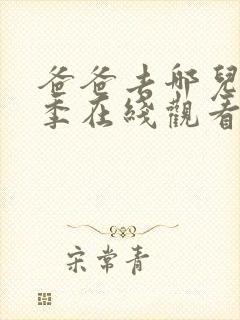 爸爸去哪兒
季在綫觀看
宋常青